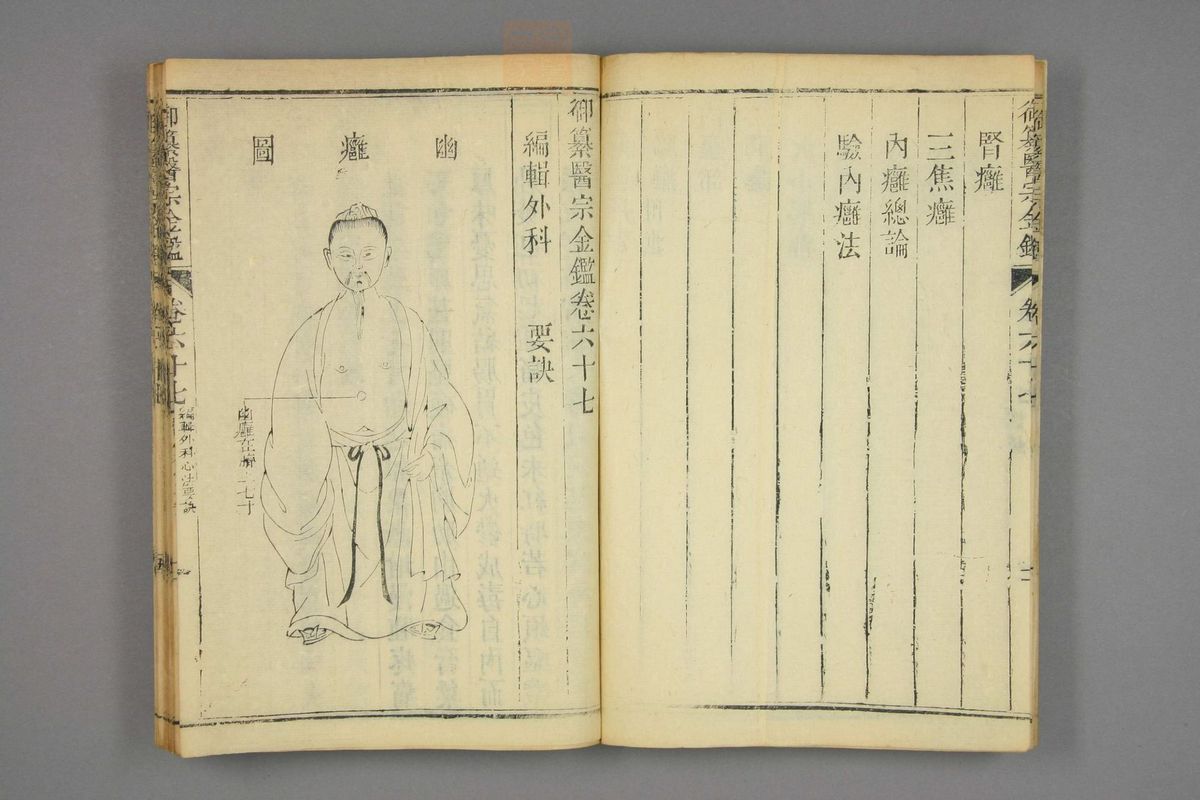 腎癰
三焦癰
內癰總論
驗內癰法
御纂醫宗金鑑卷六十七
編輯外科 要訣
幽癰圖
幽癰在臍上七寸
御纂醫宗金鑑
卷六十七
編輯外科心法要訣